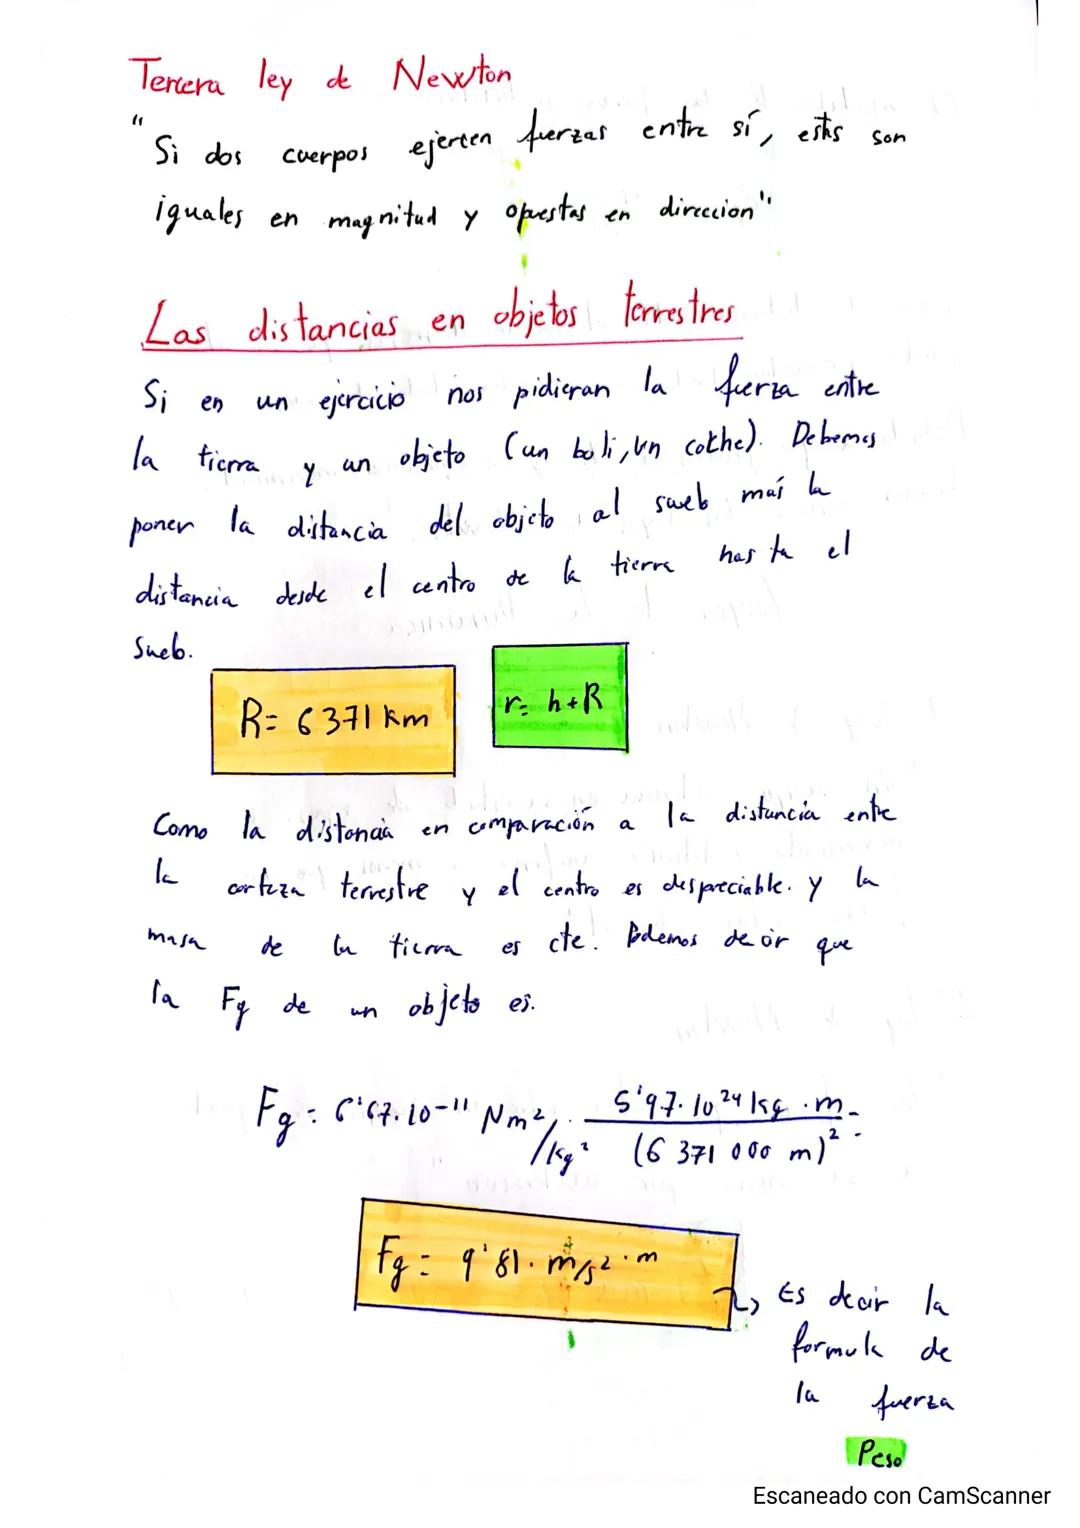 Tercera ley de Newton
"
Si dos cuerpos ejercen fuerzas entre sí, estas son
iguales en magnitud y opuestas en direccion"
Las distancias en objetos terrestres
Si en un ejercicio nos pidieran la fuerza entre
la tierra y un objeto (un boli, un cothe). Debemos
poner la distancia del objeto al suelo más la
distancia desde el centro de la tierra hasta el
suelo.
R= 6371 km
r= h+R
Como la distancia en comparación a la distancia entre
la corteza terrestre y el centro es despreciable. y la
masa de la tierra es cte. Podemos decir que
la Fg de un objeto es.
Fg = 6'67·10-¹¹ Nm²/kg² · 5'97·10²⁴ kg · m / (6 371 000 m)² =
Fg = 9'81 · m/s² · m
Es decir la
formula de
la fuerza
Peso
Escaneado con CamScanner